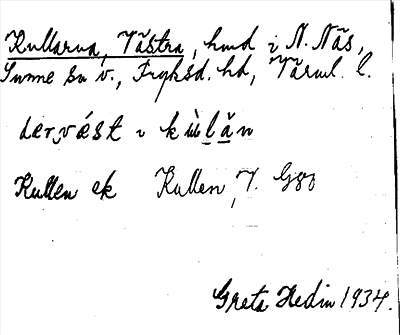 Kullarna, Västra, hmd i N. Näs,
Sunne sn v., Fryksd. hd, Värml. l.
därvǽst i kùlän
Kullen ek Kullen, J. Ggg
Greta Hedin 1934.